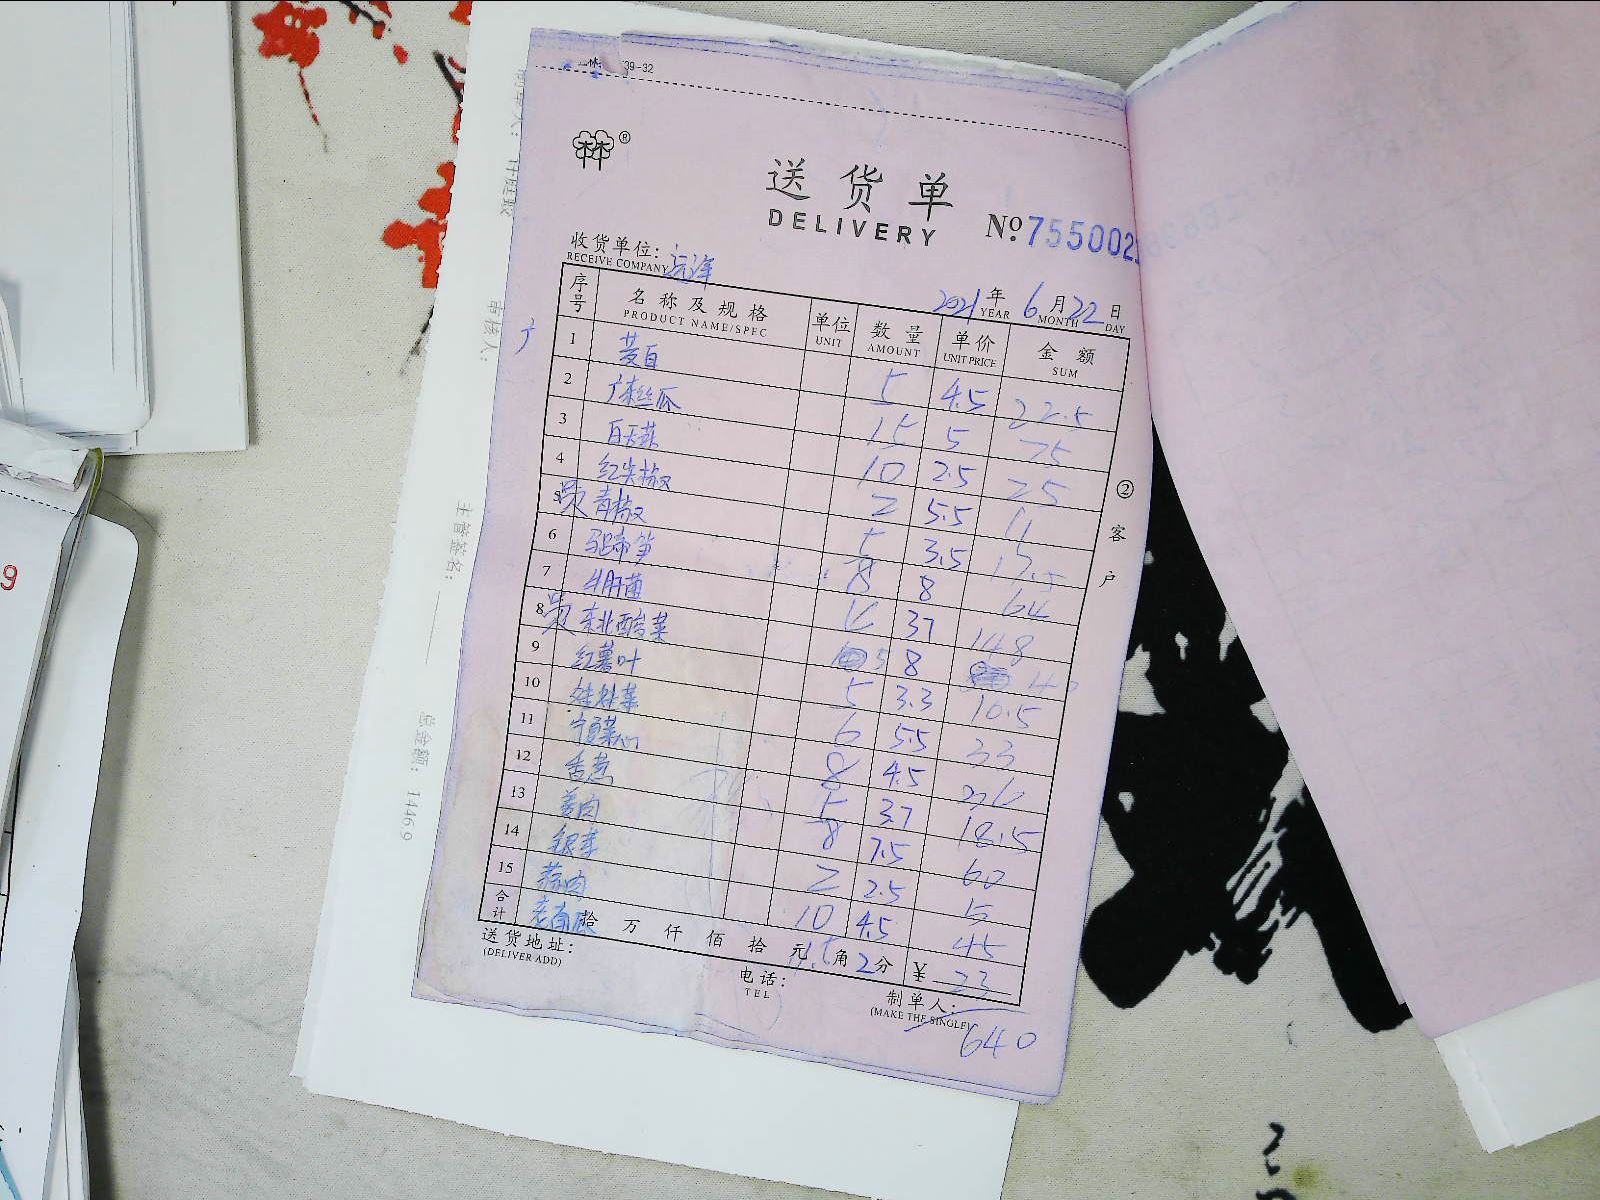 39-32
®
送货单
DELIVERY
No 755002
收货单位: 远洋
RECEIVE COMPANY
2021年 6月 22日
YEAR MONTH DAY
序号 名称及规格 单位 数量 单价 金额
PRODUCT NAME/SPEC UNIT AMOUNT UNIT PRICE SUM
1 茭白 5 4.5 22.5
2 广东丝瓜 15 5 75
3 白玉菇 10 2.5 25
4 红尖椒 2 5.5 11
5 青椒 5 3.5 17.5
6 马蹄笋 8 8 64
7 牛肝菌 4 37 148
8 东北酸菜 5 8 40
9 红薯叶 5 3.3 10.5
10 娃娃菜 6 5.5 33
11 宁夏菜心 8 4.5
12 香葱 5 3.7 18.5
13 姜肉 8 7.5 60
14 银芽 2 2.5 5
15 蒜肉 10 4.5 45
合计 老南瓜 拾 万 仟 佰 拾 元 角 2 分 ¥ 23
送货地址:
(DELIVER ADD)
电话:
TEL
制单人:
(MAKE THE SINGLE)
640
②客户
审核人:
主管签名:
总金额: 1446.9
9